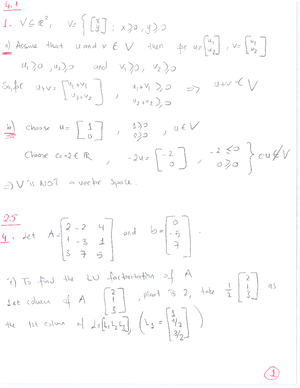 4.1
1. V ⊆ ℝ², V = { [x y] ; x ≥ 0, y ≥ 0
a) Assume that u and v ∈ V then for u = [u₁ u₂], v = [v₁ v₂]
u₁ ≥ 0, u₂ ≥ 0 and v₁ ≥ 0, v₂ ≥ 0
So, for u+v = [u₁+v₁ u₂+v₂], u₁+v₁ ≥ 0 u₂+v₂ ≥ 0 ⇒ u+v ∈ V
b) choose u = [1 0], 1 ≥ 0 0 ≥ 0, u ∈ V
Choose c = -2 ∈ ℝ, -2u = [-2 0], -2 ≤ 0 0 ≥ 0 } cu ∉ V
⇒ V is NOT a vector space.
2.5
4. Let A = [2 -2 4 1 -3 1 3 7 5] and b = [0 -5 7].
i) To find the LU factorization of A
1st column of A [2 1 3], pivot is 2, take 1/2 [2 1 3] as
the 1st column of L = [L₁ L₂ L₃], (L₁ = [1 1/2 3/2])
1